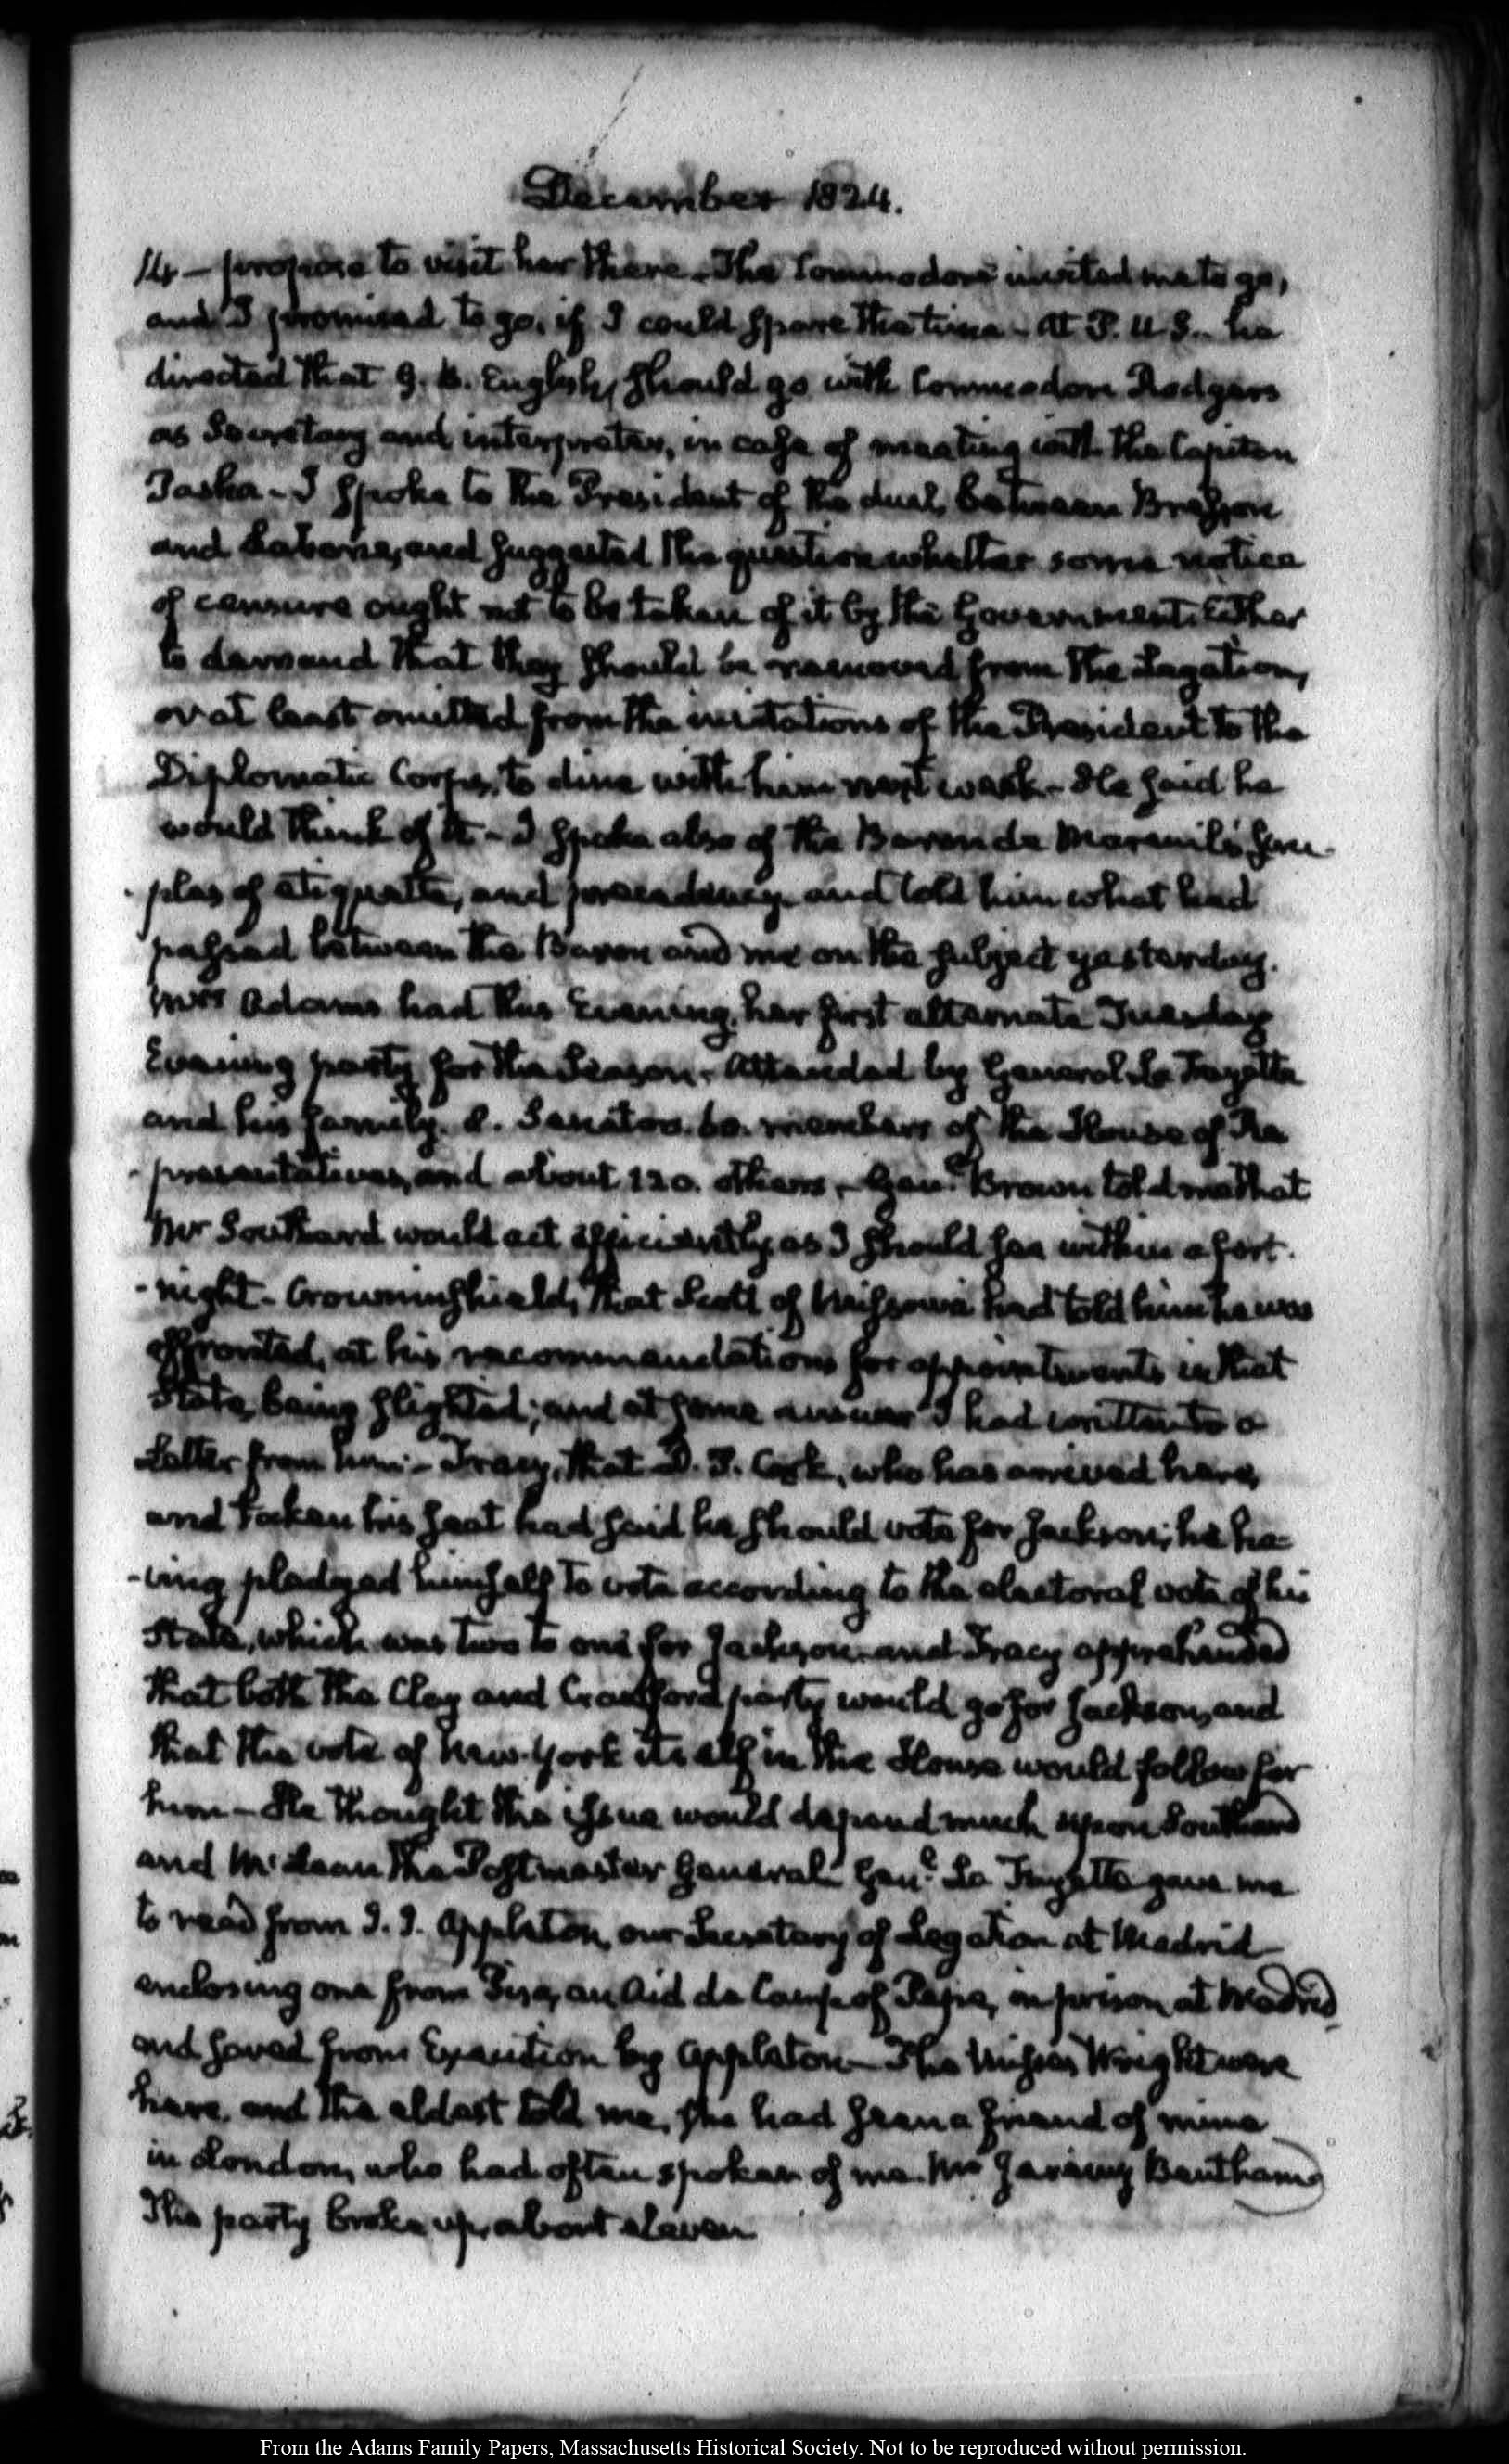 December 1824.
14 — propose to visit her there — The Commodore invited me to go,
and I promised to go, if I could spare the time — At P. U S. he
directed that G. B. English, should go with Commodore Rodgers
as Secretary and interpreter, in case of meeting with the Capitan
Pasha — I spoke to the President of the duel, between Bresson
and Laborie, and suggested the question whether some notice
of censure ought not to be taken of it by the Government. Either
to demand that they should be removed from the Legation,
or at least omitted from the invitations of the President to the
Diplomatic Corps, to dine with him next week — He said he
would think of it — I spoke also of the Baron de Mareuil's scru-
-ples of etiquette, and precedency and told him what had
passed between the Baron and me on the subject yesterday.
Mrs Adams had this Evening, her first alternate Tuesday
Evening party for the Season. Attended by General La Fayette
and his family. 8. Senators. 60. members of the House of Re
-presentatives, and about 120. others — Genl. Brown told me that
Mr Southard would act efficiently as I should see within a fort-
-night — Crowninshield, that Scott of Missouri had told him he was
affronted, at his recommendations for appointments in that
State, being slighted; and at some answer I had written to a
Letter from him — Tracy, that D. P. Cook, who has arrived here,
and taken his seat had said he should vote for Jackson; he ha-
-ving pledged himself to vote according to the electoral vote of his
State, which was two to one for Jackson and Tracy apprehended
that both the Clay and Crawford party would go for Jackson, and
that the vote of New-York itself in the House would follow for
him — He thought the issue would depend much upon Southard
and McLean the Postmaster General Genl. La Fayette gave me
to read from J. J. Appleton, our Secretary of Legation at Madrid
enclosing one from Pisa, an Aid de Camp of Pepe, in prison at Madrid
and saved from Execution by Appleton — The Misses Wright were
here, and the eldest told me, she had seen a friend of mine
in London, who had often spoken of me. Mr Jeremy Bentham
The party broke up, about eleven
From the Adams Family Papers, Massachusetts Historical Society. Not to be reproduced without permission.